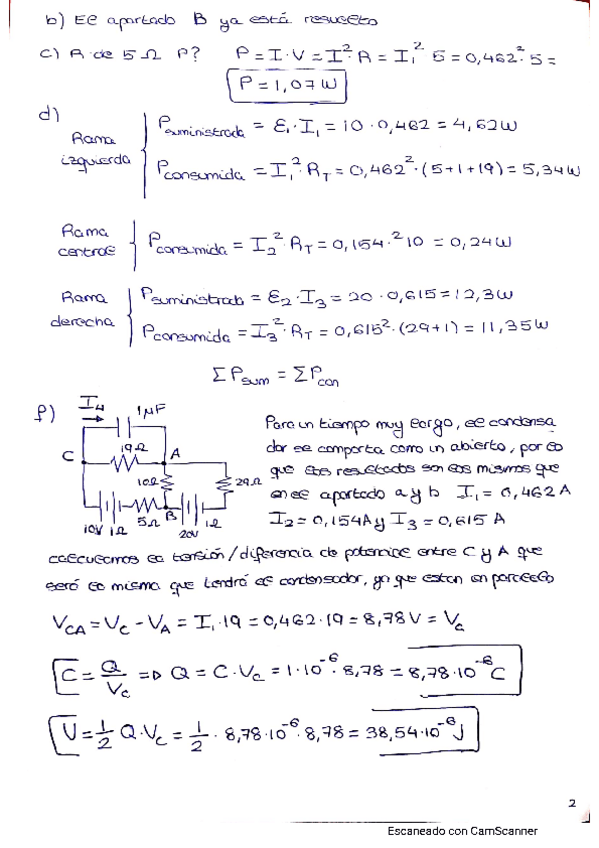 b) El apartado B ya está resuelto
c) R de 5 Ω P? P = I · V = I² · R = I₁² 5 = 0,462² · 5 =
P = 1,07 W
d)
Rama izquierda
Psuministrada = ε₁ · I₁ = 10 · 0,462 = 4,62 W
Pconsumida = I₁² · R_T = 0,462² · (5+1+19) = 5,34 W
Rama central
Pconsumida = I₂² · R_T = 0,154 · ² 10 = 0,24 W
Rama derecha
Psuministrada = ε₂ · I₃ = 20 · 0,615 = 12,3 W
Pconsumida = I₃² · R_T = 0,615² · (29+1) = 11,35 W
ΣPsum = ΣPcon
f)
I₄
1 μF
C
19Ω
A
10Ω
29Ω
10V 1Ω
5Ω
B
20V
1Ω
Para un tiempo muy largo, el condensa
dor se comporta como un abierto, por lo
que los resultados son los mismos que
en el apartado a y b I₁ = 0,462 A
I₂ = 0,154 A y I₃ = 0,615 A
calculamos la tensión/diferencia de potencial entre C y A que
será la misma que tendrá el condensador, ya que estan en paralelo
V_CA = V_C - V_A = I₁ · 19 = 0,462 · 19 = 8,78 V = V_c
C = Q/V_c => Q = C · V_c = 1 · 10⁻⁶ · 8,78 = 8,78 · 10⁻⁶ C
U = 1/2 Q · V_c = 1/2 · 8,78 · 10⁻⁶ · 8,78 = 38,54 · 10⁻⁶ J
2
Escaneado con CamScanner